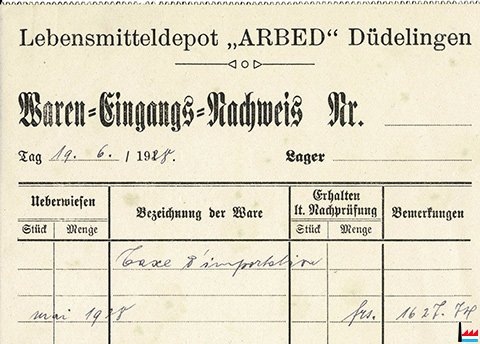 Lebensmitteldepot „ARBED“ Düdelingen
Waren-Eingangs-Nachweis Nr.
Tag 19. 6. / 1928. Lager
Ueberwiesen Bezeichnung der Ware Erhalten lt. Nachprüfung Bemerkungen
Stück Menge Stück Menge
Taxe d'importation
mai 1928 frs. 1627.74